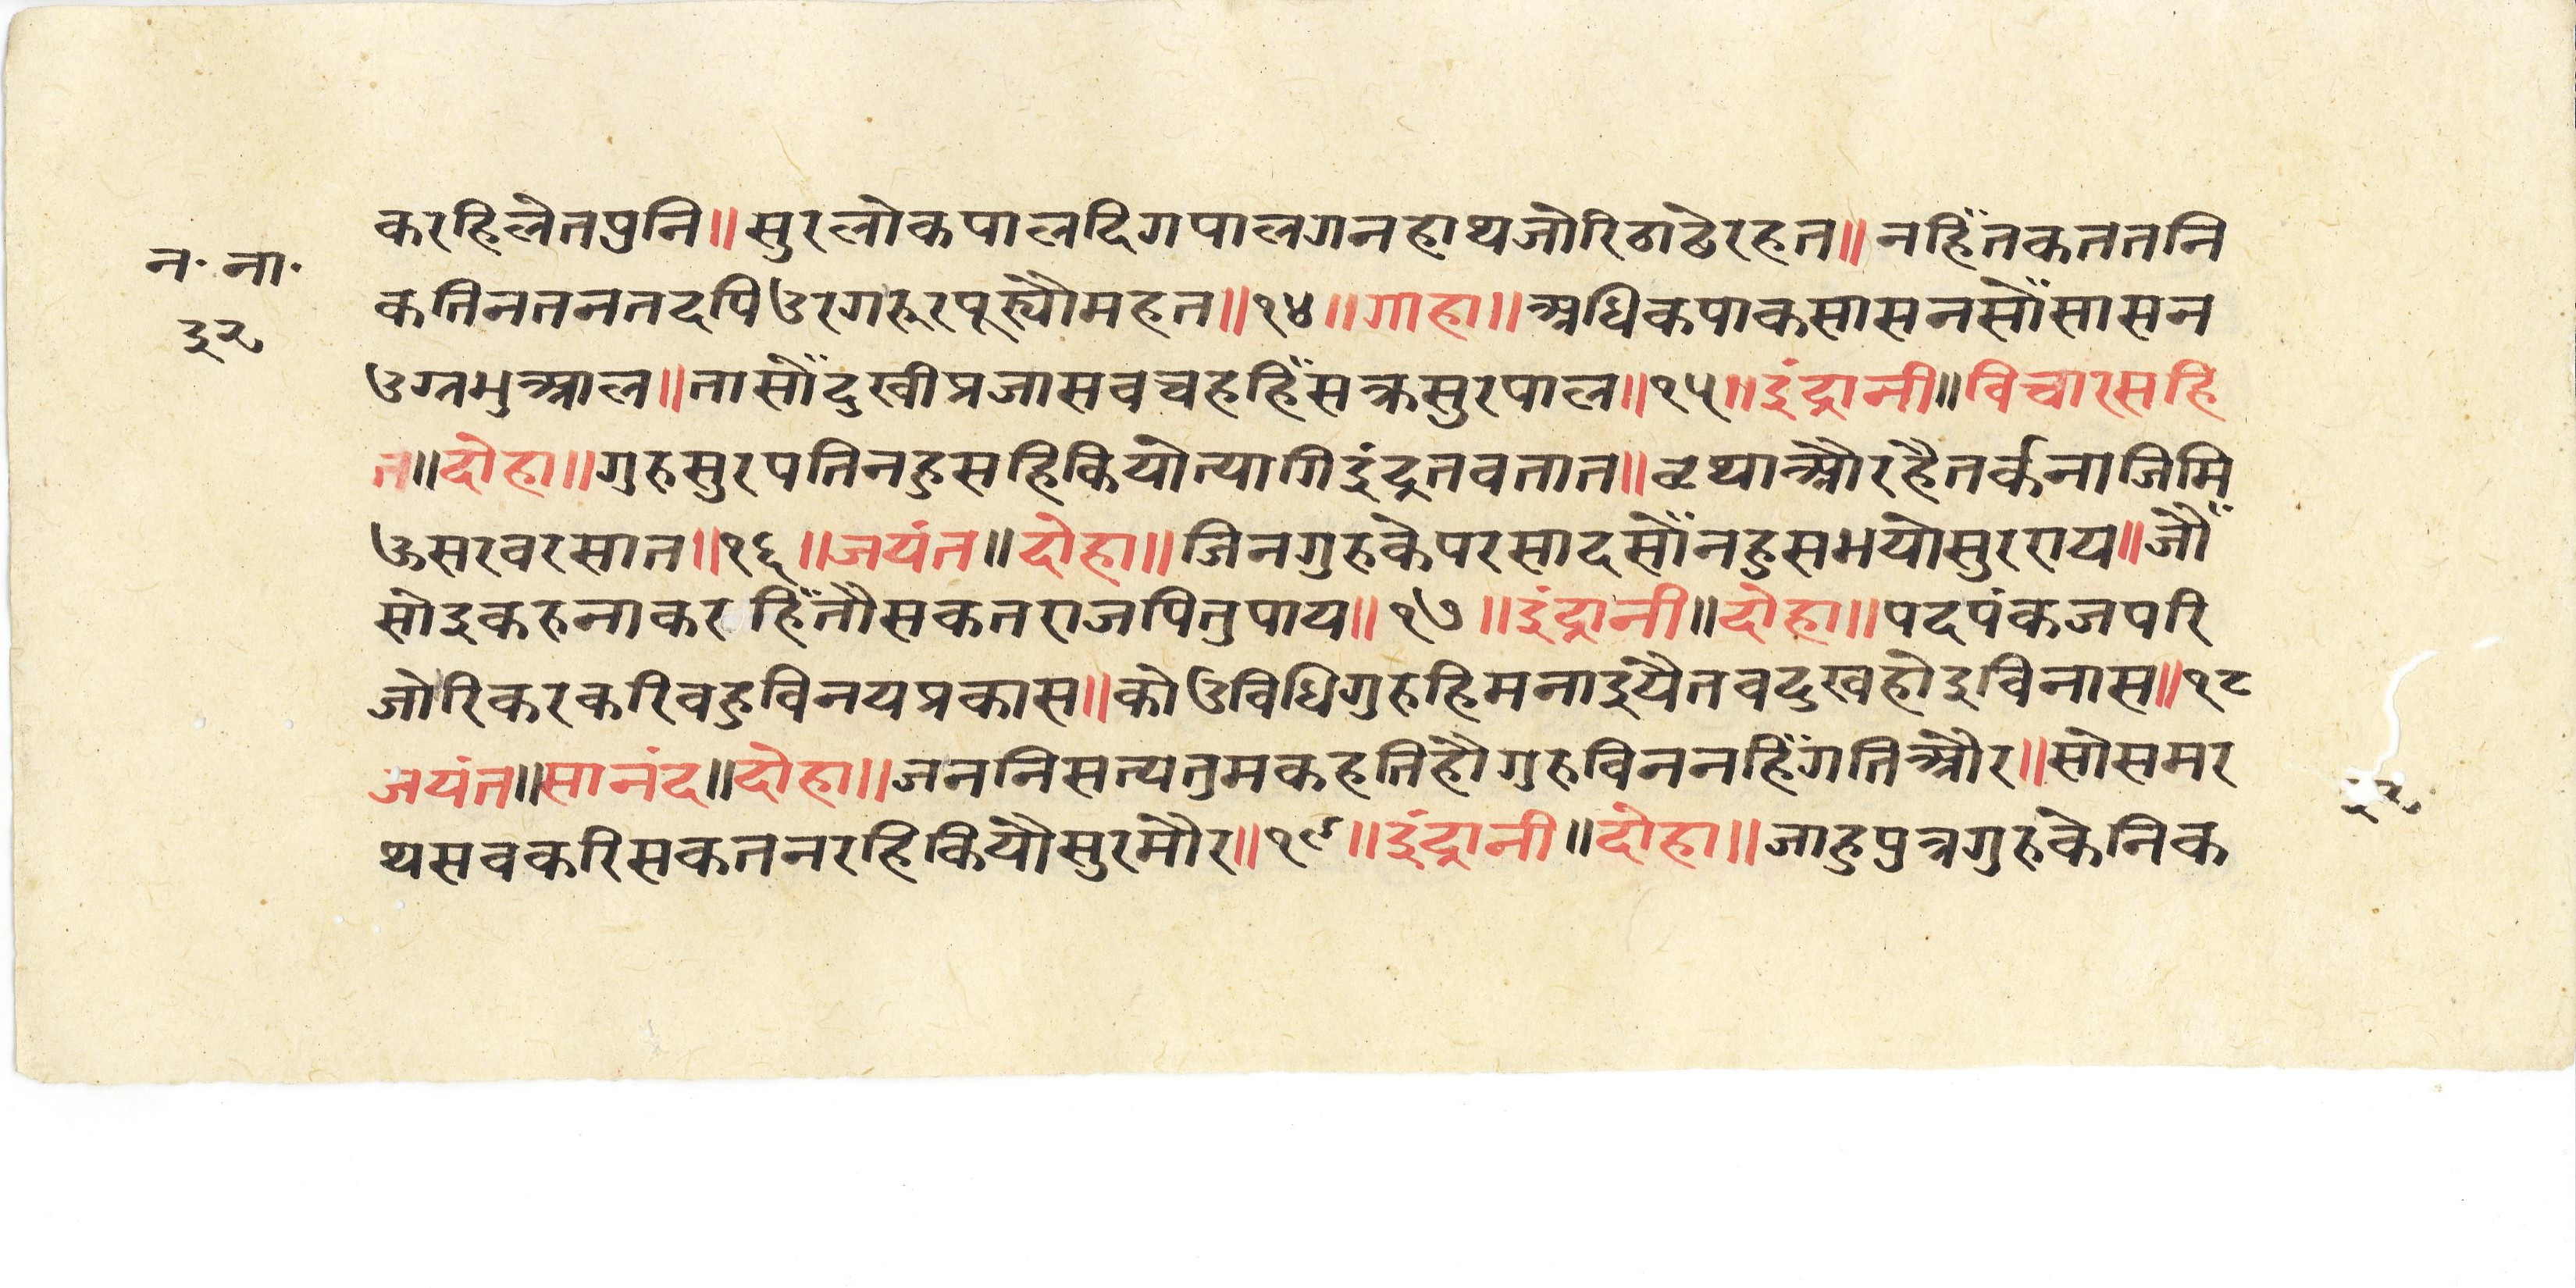 न॰ ना॰
३२
करहिलेतप्रनि॥सुरलोकपालदिगपालगनहाथजोरिठाढेरहत॥नहिँतकततनि
कतिनतनतदपिउरगरूरपूर्‍यौमहत॥१४॥गाहा॥अधिकपाकसासनसोँसासन
उग्नभुआल॥तासौँदुखीप्रजासवचहहिँसक्रसुरपाल॥१५॥इंद्रानी॥विचारसहि
त॥दोहा॥गुरुसुरपतिनहुसहिकियोत्यागिइंद्रतवतात॥व्रथाऔरहैतर्कनाजिमि
ऊसरवरसात॥१६॥जयंत॥दोहा॥जिनगुरुकेपरसादसोँनहुसभयोसुरराय॥जौँ
सोइकरुनाकर हिँतौसकतराजपितुपाय॥१७॥इंद्रानी॥दोहा॥पदपंकजपरि
जोरिकरकरिवहुविनयप्रकास॥कोउविधिगुरुहिमनाइयैतवदुखहोइविनास॥१८
जयंत॥सानंद॥दोहा॥जननिसत्यतुमकहतिहौगुरुविननहिँगतिऔर॥सोसमर
थसवकरिसकतनरहिकियौसुरमौर॥१९॥इंद्रानी॥दोहा॥जाहुपुत्रगुरुकेनिक